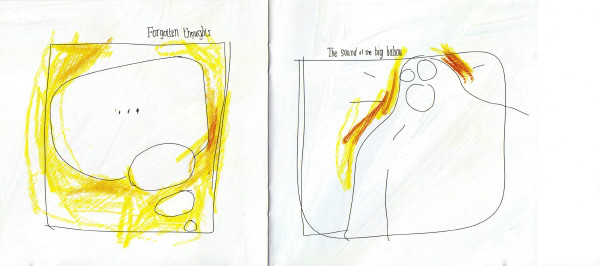 Forgotten thoughts
The sound of the big